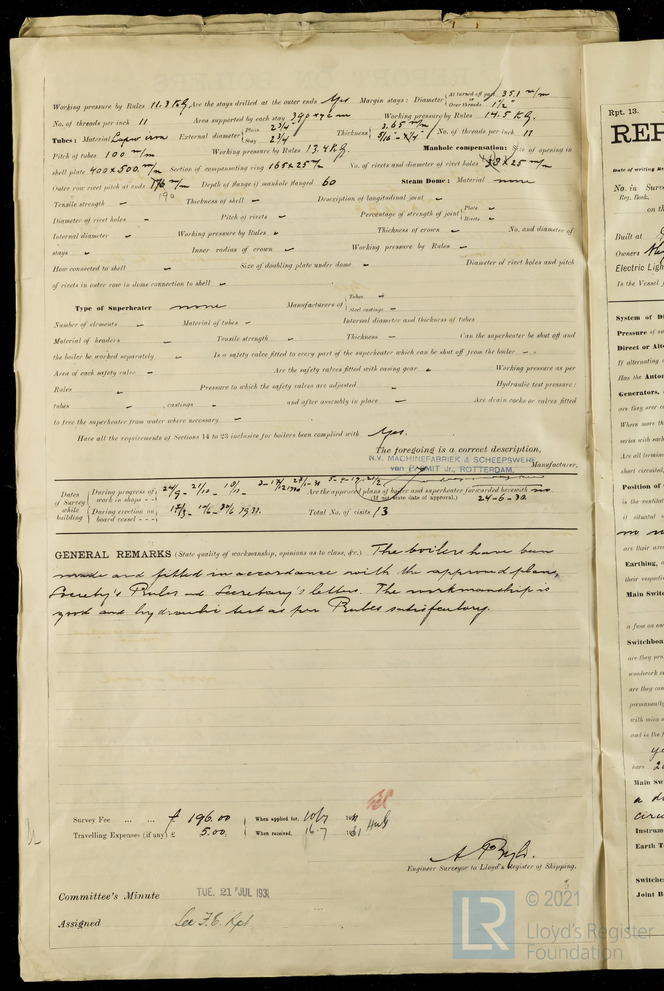 Working pressure by Rules 11.3 Kg. Are the stays drilled at the outer ends Yes. Margin stays: Diameter At turned off part, 35.1 m/m Over threads 1½"
No. of threads per inch 11 Area supported by each stay Working pressure by Rules 14.5 Kg.
Tubes: Material Lapw iron External diameter Plain 2¾" Stay 2¾" Thickness 3.65 m/m 5/16" - ¼" No. of threads per inch 11
Pitch of tubes 100 m/m Working pressure by Rules 13.4 Kg. Manhole compensation: Size of opening in
shell plate 400 x 500 m/m Section of compensating ring 165 x 25 m/m No. of rivets and diameter of rivet holes 38 x 25 m/m
Outer row rivet pitch at ends 176 m/m Depth of flange if manhole flanged 60 Steam Dome: Material none
190
Tensile strength - Thickness of shell - Description of longitudinal joint -
Diameter of rivet holes - Pitch of rivets - Percentage of strength of joint Plate - Rivets -
Internal diameter - Working pressure by Rules - Thickness of crown - No. and diameter of
stays - Inner radius of crown - Working pressure by Rules -
How connected to shell - Size of doubling plate under dome - Diameter of rivet holes and pitch
of rivets in outer row in dome connection to shell -
Type of Superheater none Manufacturers of Tubes - Steel castings -
Number of elements - Material of tubes - Internal diameter and thickness of tubes
Material of headers - Tensile strength - Thickness - Can the superheater be shut off and
the boiler be worked separately - Is a safety valve fitted to every part of the superheater which can be shut off from the boiler -
Area of each safety valve - Are the safety valves fitted with easing gear - Working pressure as per
Rules - Pressure to which the safety valves are adjusted - Hydraulic test pressure:
tubes - , castings - and after assembly in place - Are drain cocks or valves fitted
to free the superheater from water where necessary -
Have all the requirements of Sections 14 to 23 inclusive for boilers been complied with Yes.
The foregoing is a correct description,
N.V. MACHINEFABRIEK & SCHEEPSWERF
van P. SMIT Jr., ROTTERDAM. Manufacturer.
Dates of Survey while building During progress of work in shops - - Are the approved plans of boiler and superheater forwarded herewith no
(If not state date of approval.) 24-6-30
During erection on board vessel - - - Total No. of visits 13
GENERAL REMARKS (State quality of workmanship, opinions as to class, &c.) The boilers have been
made and fitted in accordance with the approved plans,
Society's Rules and Secretary's letters. The workmanship is
good and hydraulic test as per Rules satisfactory.
Survey Fee ... ... £ 196.00 When applied for, 10/7 1931
Travelling Expenses (if any) £ 5.00. When received, 16-7 1931
Engineer Surveyor to Lloyd's Register of Shipping.
Committee's Minute TUE. 21 JUL 1931
Assigned See F.E. Rpt
© 2021
LR Lloyd's Register
Foundation
Rpt. 13.
REP
Date of writing Re
No. in Surv
Reg. Book.
on th
Built at
Owners
Electric Ligh
Is the Vessel f
System of Di
Pressure of su
Direct or Alte
If alternating
Has the Auto
Generators,
are they over c
Where more th
series with each
Are all termin
short circuited,
Position of
in the ventilat
it situated
are their axes
Earthing, a
their respecti
Main Switc
a fuse on eac
Switchboa
are they pro
woodwork o
are they con
permanently
with mica o
and is the f
bars
Main Sw
a d
circu
Instrum
Earth T
Switches
Joint B